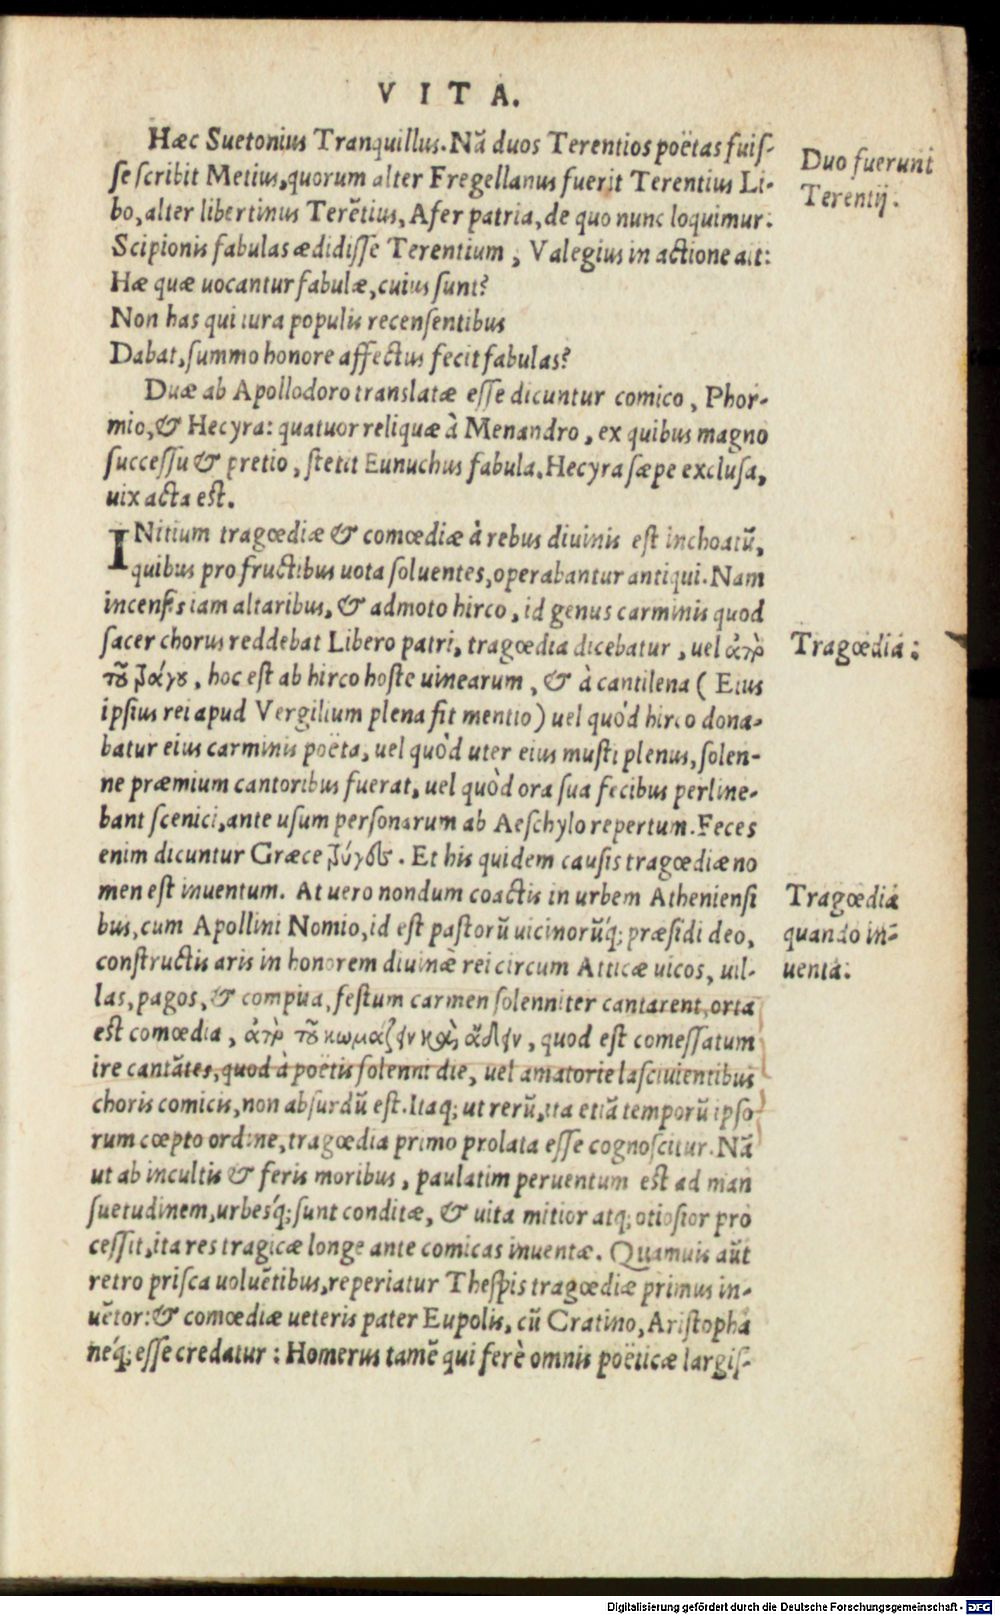 VITA.
Hæc Suetonius Tranquillus. Nã duos Terentios poëtas fuiſ-
ſe ſcribit Metius, quorum alter Fregellanus fuerit Terentius Li-
bo, alter libertinus Terẽtius, Afer patria, de quo nunc loquimur.
Scipionis fabulas ædidiſſe Terentium, Valegius in actione ait:
Hæ quæ uocantur fabulæ, cuius ſunt?
Non has qui iura populis recenſentibus
Dabat, ſummo honore affectus fecit fabulas?
Duo fuerunt
Terentij.
Duæ ab Apollodoro translatæ eſſe dicuntur comico, Phor-
mio, & Hecyra: quatuor reliquæ à Menandro, ex quibus magno
ſucceſſu & pretio, ſtetit Eunuchus fabula. Hecyra ſæpe excluſa,
uix acta eſt.
INitium tragœdiæ & comœdiæ à rebus diuinis eſt inchoatũ,
quibus pro fructibus uota ſoluentes, operabantur antiqui. Nam
incenſis iam altaribus, & admoto hirco, id genus carminis quod
ſacer chorus reddebat Libero patri, tragœdia dicebatur, uel ἀπὸ
τοῦ τράγου, hoc eſt ab hirco hoſte uinearum, & à cantilena ( Eius
ipſius rei apud Vergilium plena fit mentio) uel quòd hirco dona-
batur eius carminis poëta, uel quòd uter eius muſti plenus, ſolen-
ne præmium cantoribus fuerat, uel quòd ora ſua fecibus perline-
bant ſcenici, ante uſum perſonarum ab Aeſchylo repertum. Feces
enim dicuntur Græce τρύγες. Et his quidem cauſis tragœdiæ no
men eſt inuentum. At uero nondum coactis in urbem Athenienſi
bus, cum Apollini Nomio, id eſt paſtorũ uicinorũq́; præſidi deo,
conſtructis aris in honorem diuinæ rei circum Atticæ uicos, uil-
las, pagos, & compita, feſtum carmen ſolenniter cantarent, orta
eſt comœdia, ἀπὸ τοῦ κωμάζειν καὶ ᾄδειν, quod eſt comeſſatum
ire cantãtes, quod à poëtis ſolenni die, uel amatorie laſciuientibus
choris comicis, non abſurdũ eſt. Itaq; ut rerũ, ita etiã temporũ ipſo
rum cœpto ordine, tragœdia primo prolata eſſe cognoſcitur. Nã
ut ab incultis & feris moribus, paulatim peruentum eſt ad man
ſuetudinem, urbesq́; ſunt conditæ, & uita mitior atq; otioſior pro
ceſſit, ita res tragicæ longe ante comicas inuentæ. Quamuis aũt
retro priſca uoluẽtibus, reperiatur Theſpis tragœdiæ primus in-
uẽtor: & comœdiæ ueteris pater Eupolis, cũ Cratino, Ariſtopha
neq́; eſſe credatur: Homerus tamẽ qui ferè omnis poëticæ largiſ-
Tragœdia:
Tragœdia
quando in-
uenta.
Digitalisierung gefördert durch die Deutsche Forschungsgemeinschaft - DFG